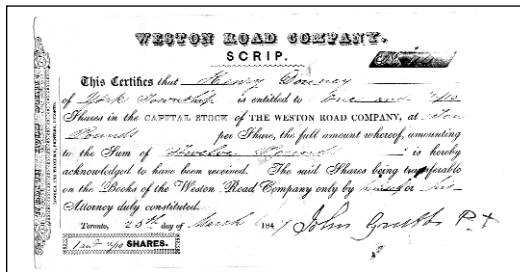 WESTON ROAD COMPANY.
SCRIP.
This Certifies that Henry Downey
of York Township is entitled to One and 2/10
Shares in the CAPITAL STOCK OF THE WESTON ROAD COMPANY, at Ten
Pounds per Share, the full amount whereof, amounting
to the Sum of Twelve Pounds is hereby
acknowledged to have been received. The said Shares being transferable
on the Books of the Weston Road Company only by him or his
Attorney duly constituted.
Toronto, 25th day of March 1847 John Grubb P.t
1 and 2/10 SHARES.